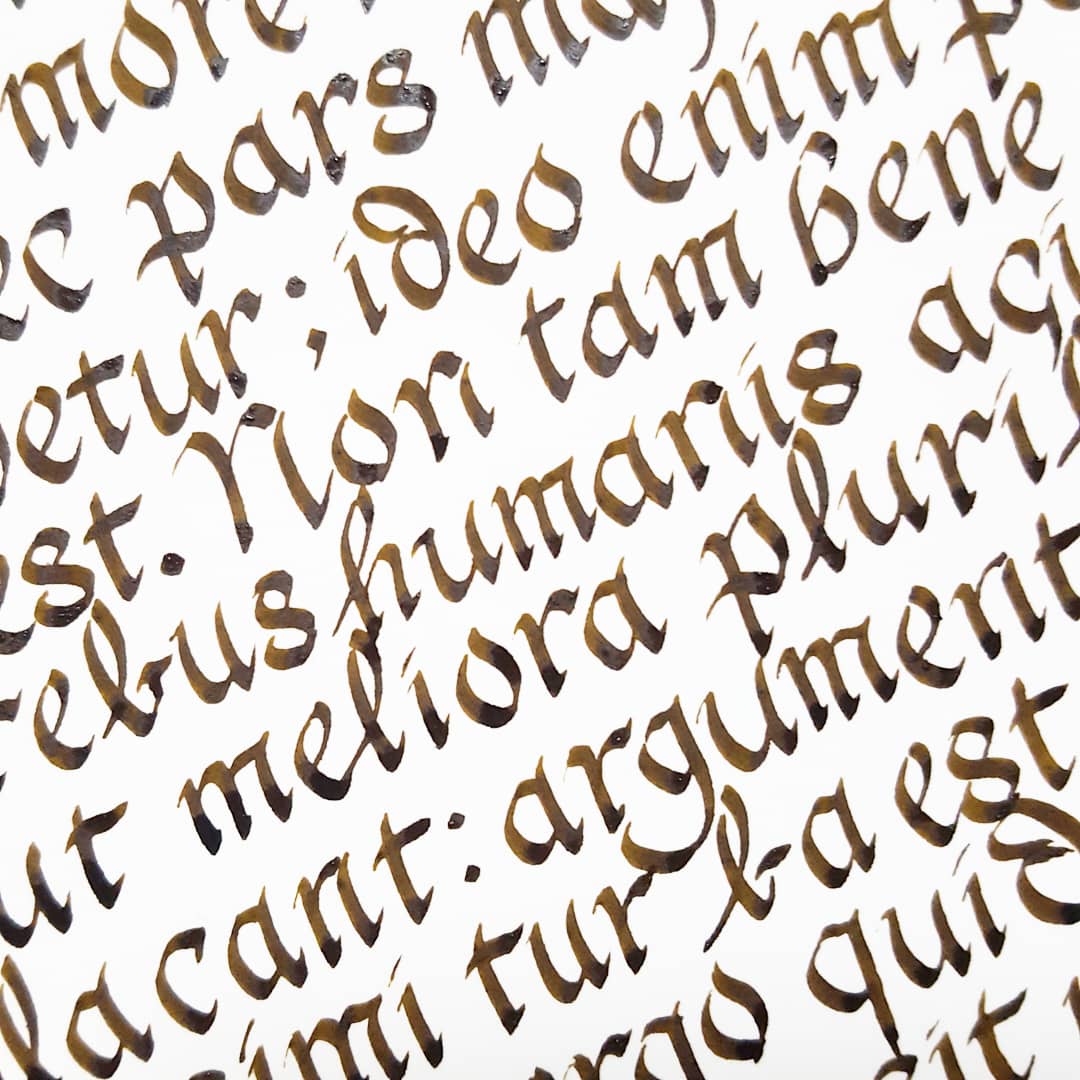 more
ec pars maj
etur; ideo enim p
est. Non tam bene
ebus humanis agi
ut meliora pluri
lacant: argument
imi turba est
rgo quid
it